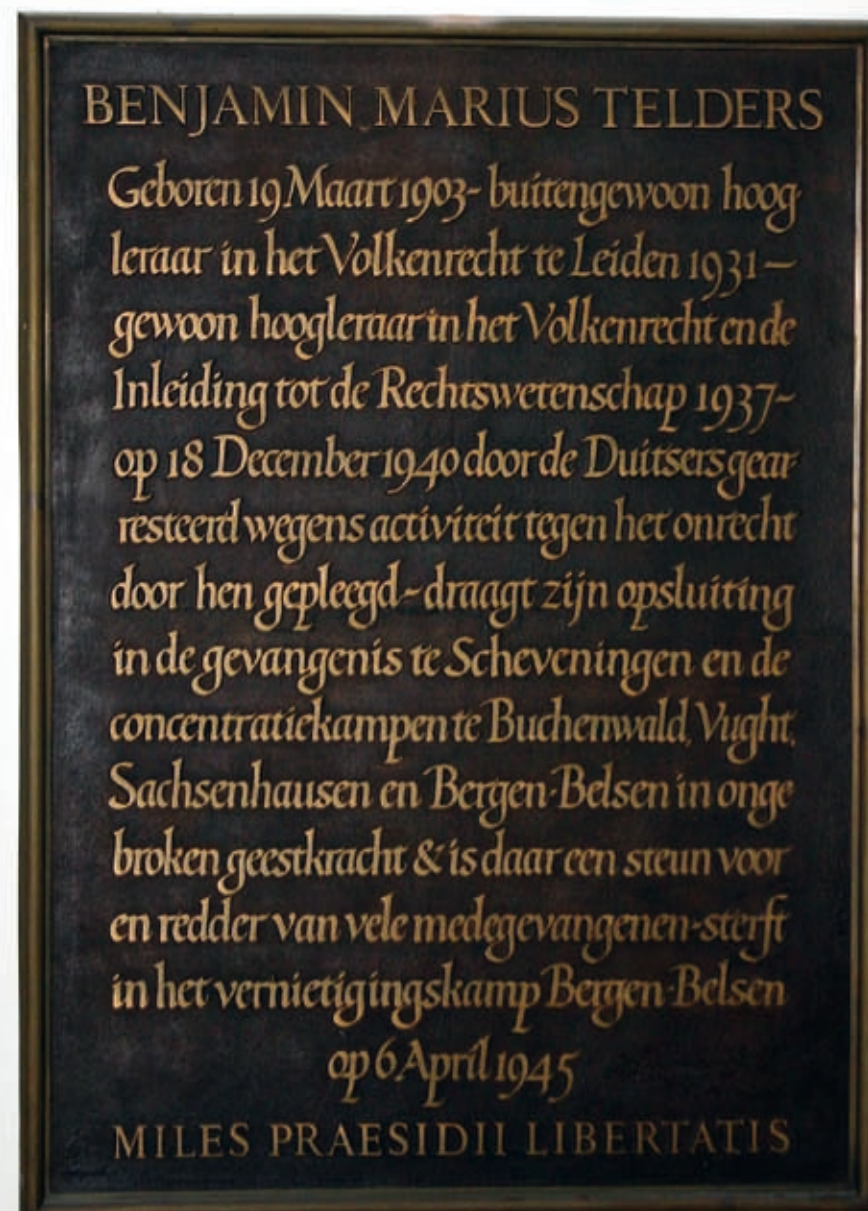 BENJAMIN MARIUS TELDERS
Geboren 19 Maart 1903 - buitengewoon hoog
leraar in het Volkenrecht te Leiden 1931 –
gewoon hoogleraar in het Volkenrecht en de
Inleiding tot de Rechtswetenschap 1937 -
op 18 December 1940 door de Duitsers gear-
resteerd wegens activiteit tegen het onrecht
door hen gepleegd - draagt zijn opsluiting
in de gevangenis te Scheveningen en de
concentratiekampen te Buchenwald, Vught,
Sachsenhausen en Bergen-Belsen in onge
broken geestkracht & is daar een steun voor
en redder van vele medegevangenen - sterft
in het vernietigingskamp Bergen-Belsen
op 6 April 1945
MILES PRAESIDII LIBERTATIS